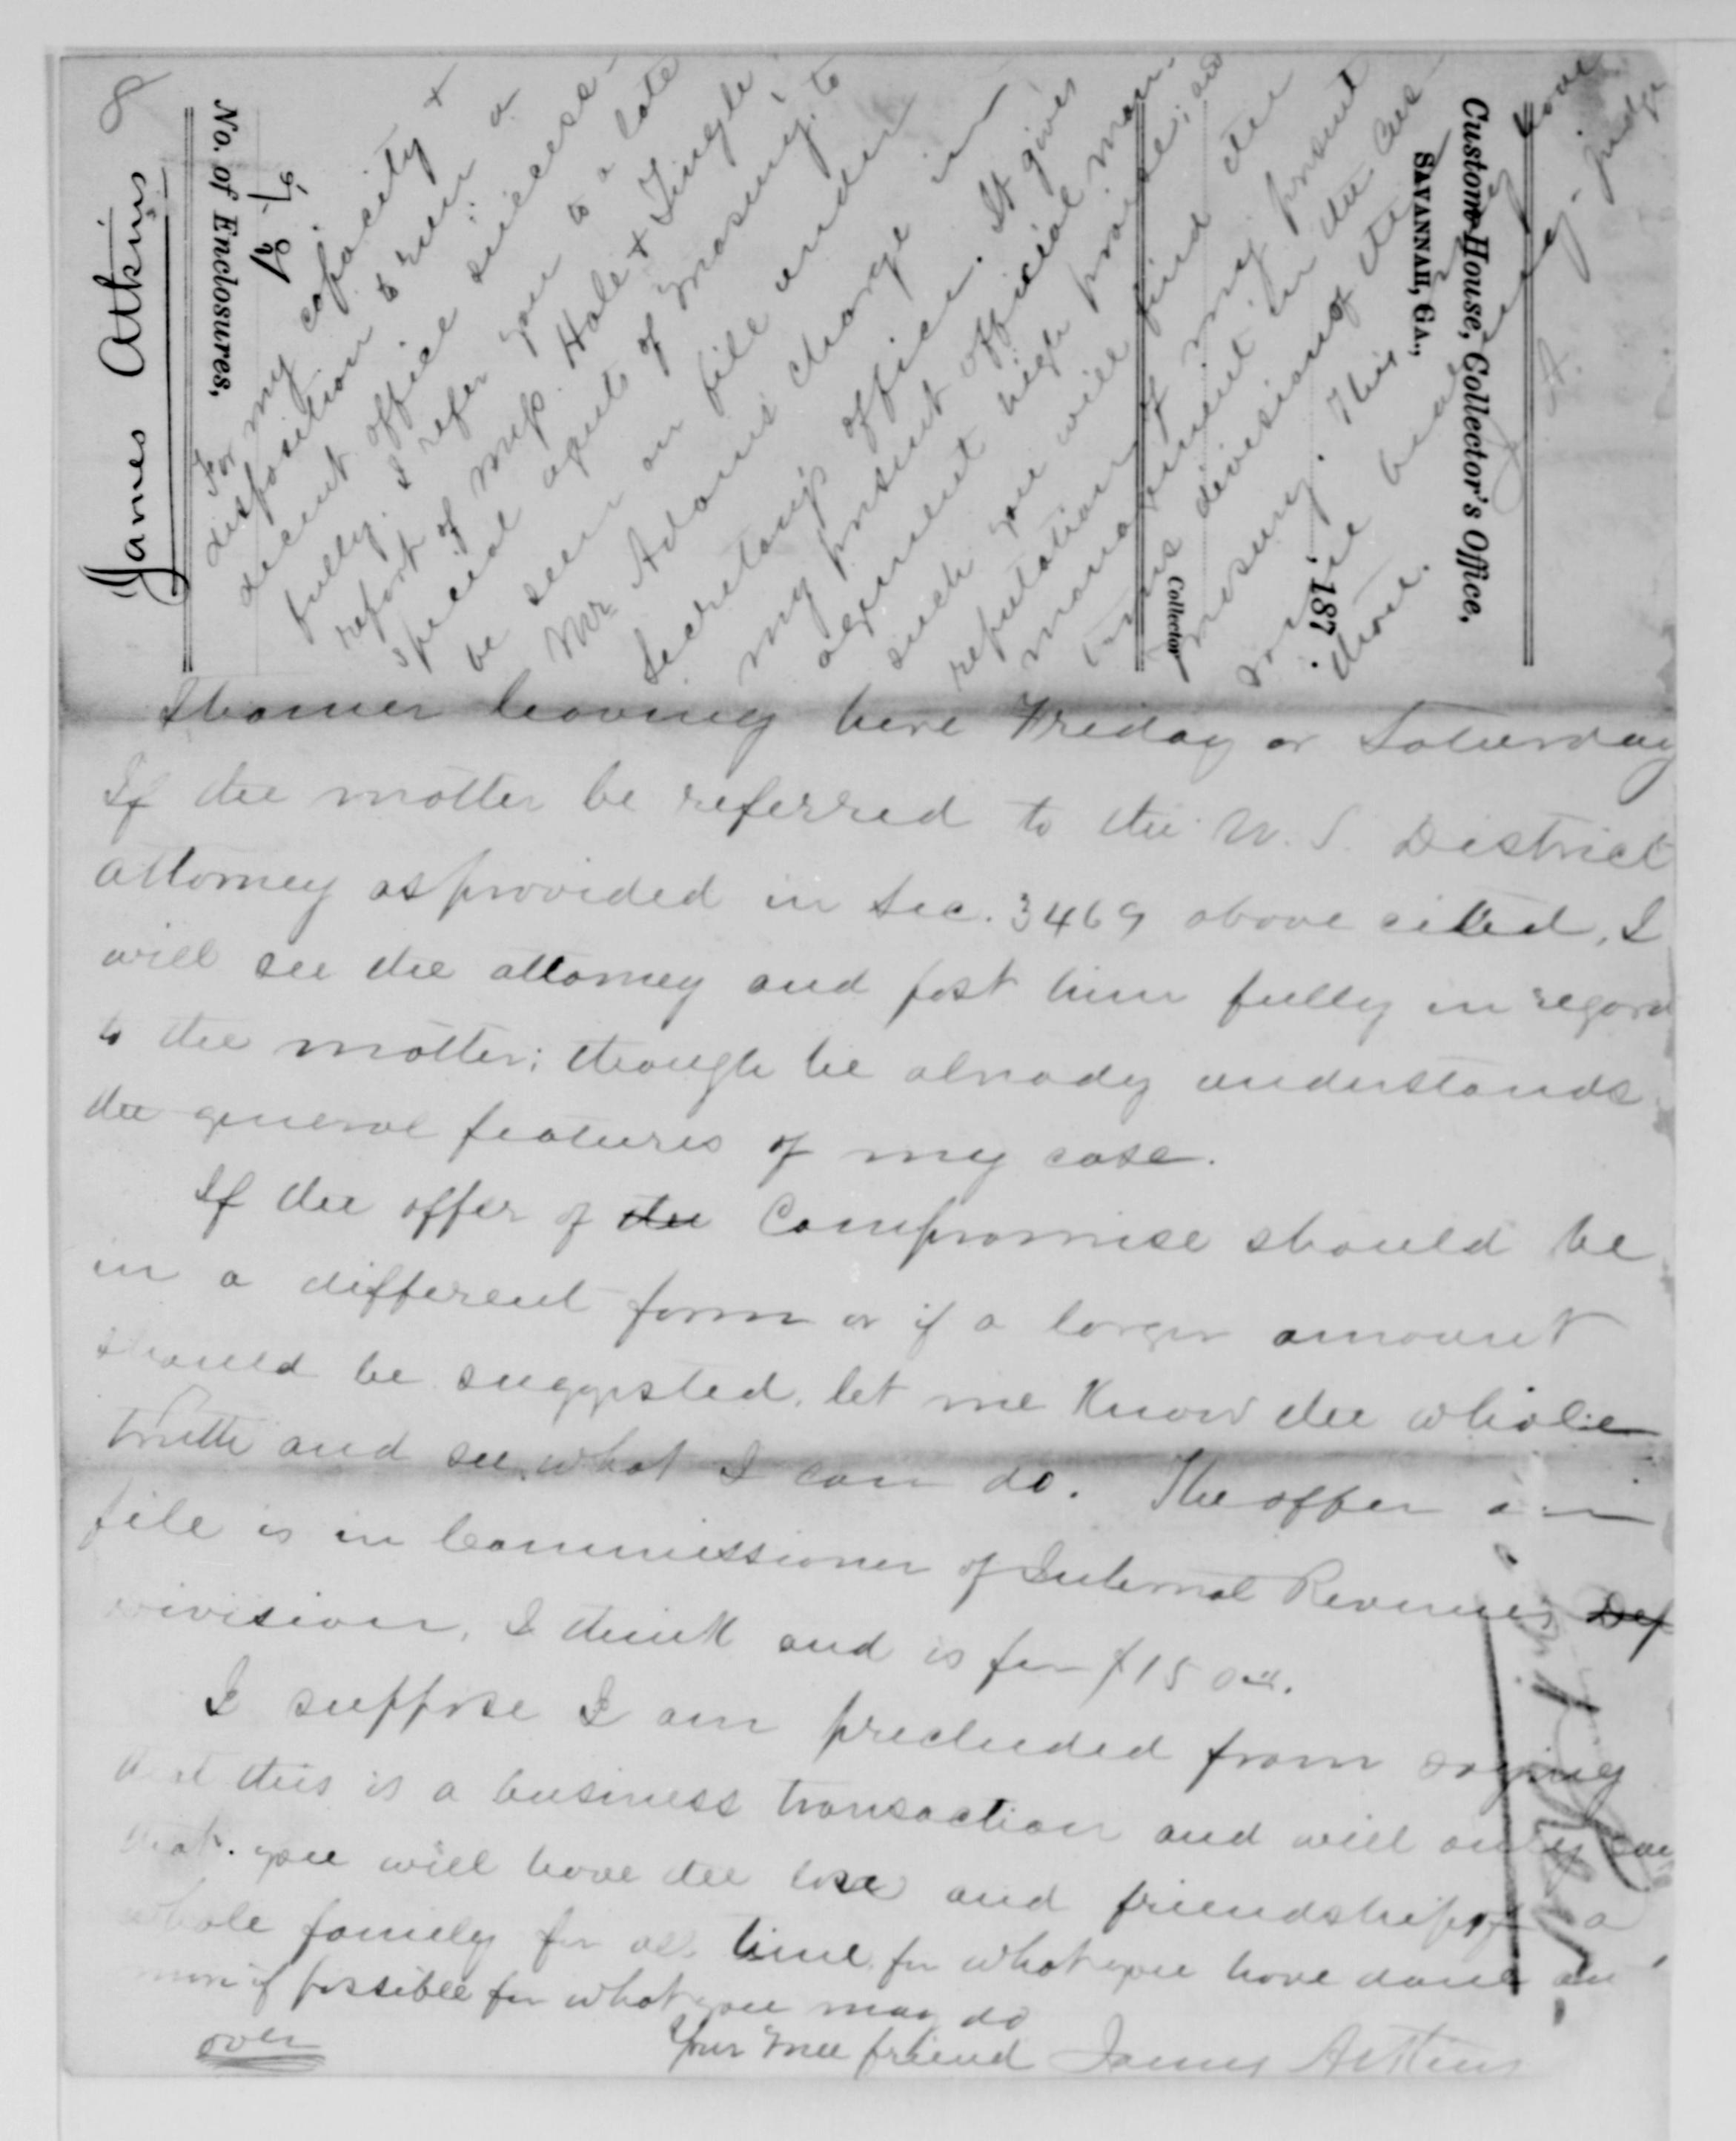 8
James Atkins
No. of Enclosures,
Custom House, Collector's Office,
SAVANNAH, GA.,
, 187 .
Collector
For my capacity &
disposition to run a
decent office success-
fully. I refer you to a late
report of Mess. Hale & Tingle
special agents of Treasury, to
be seen on file under
Mr Adams charge in
Secretary's office. It gives
my present official man-
agement high praise; and
such you will find the
reputation of my present
management in the Cus-
toms division of the
Treasury. This
some
done.
J A.
steamer leaving here Friday or Saturday
If the matter be referred to the U. S. District
attorney as provided in Sec. 3469 above cited, I
will see the attorney and post him fully in regard
to the matter; though he already understands
the general features of my case.
If the offer of the Compromise should be
in a different form or if a larger amount
should be suggested, let me Know the whole
truth and see what I can do. The offer on
file is in Commissioner of Internal Revenues Dep
division, I think and is for $1500.
I suppose I am precluded from saying
that this is a business transaction and will only say
that you will have the love and friendship of a
whole family for all time for what you have done and
more if possible for what you may do
Your true friend James Atkins
over